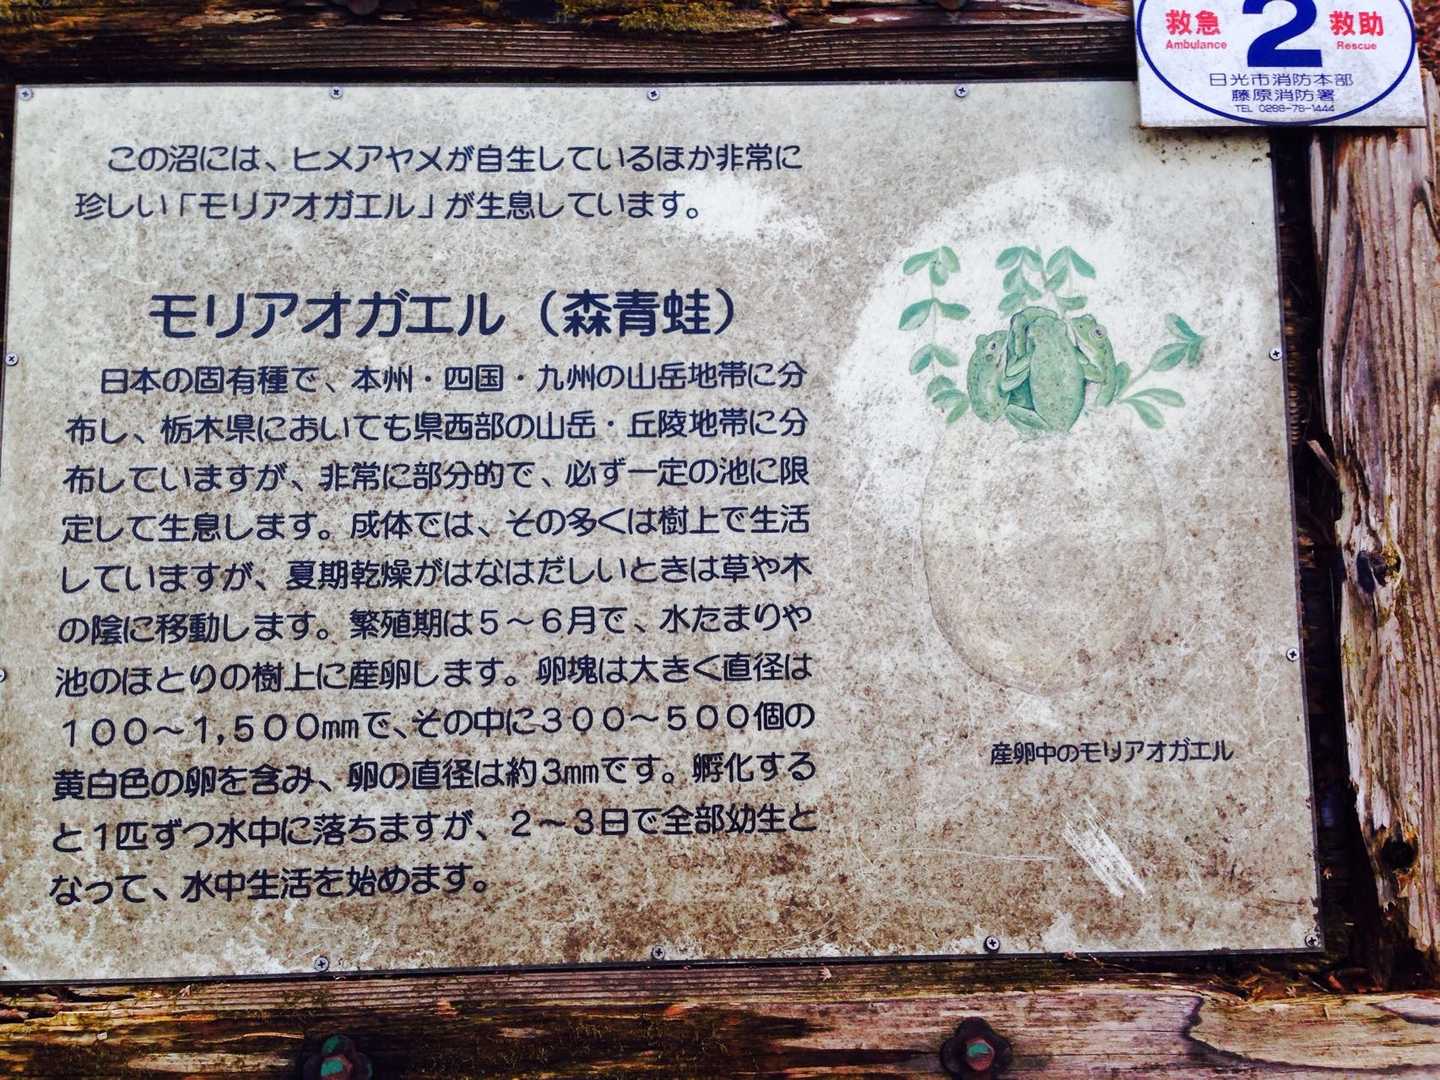 救急 2 救助
Ambulance Rescue
日光市消防本部
藤原消防署
TEL 0288-76-1444
この沼には、ヒメアヤメが自生しているほか非常に
珍しい「モリアオガエル」が生息しています。
モリアオガエル（森青蛙）
日本の固有種で、本州・四国・九州の山岳地帯に分
布し、栃木県においても県西部の山岳・丘陵地帯に分
布していますが、非常に部分的で、必ず一定の池に限
定して生息します。成体では、その多くは樹上で生活
していますが、夏期乾燥がはなはだしいときは草や木
の陰に移動します。繁殖期は５～６月で、水たまりや
池のほとりの樹上に産卵します。卵塊は大きく直径は
１００～１,５００mmで、その中に３００～５００個の
黄白色の卵を含み、卵の直径は約３mmです。孵化する
と１匹ずつ水中に落ちますが、２～３日で全部幼生と
なって、水中生活を始めます。
産卵中のモリアオガエル